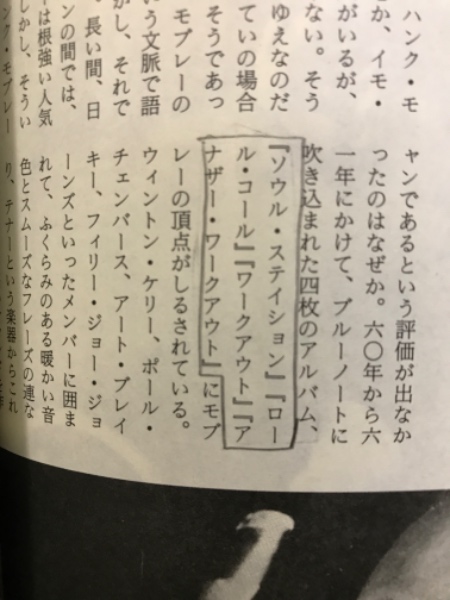 ハンク・モ
か、イモ・
がいるが、
ない。そう
ゆえなのだ
ていの場合
そうであっ
モブレーの
いう文脈で語
がし、それで
、長い間、日
ンの間では、
は根強い人気
しかし、そうい
ンク・モブレー
ャンであるという評価が出なか
ったのはなぜか。六〇年から六
一年にかけて、ブルーノートに
吹き込まれた四枚のアルバム、
『ソウル・ステイション』『ロー
ル・コール』『ワークアウト』『ア
ナザー・ワークアウト』にモブ
レーの頂点がしるされている。
ウィントン・ケリー、ポール・
チェンバース、アート・ブレイ
キー、フィリー・ジョー・ジョ
ーンズといったメンバーに囲ま
れて、ふくらみのある暖かい音
色とスムーズなフレーズの連な
り、テナーという楽器からこれ